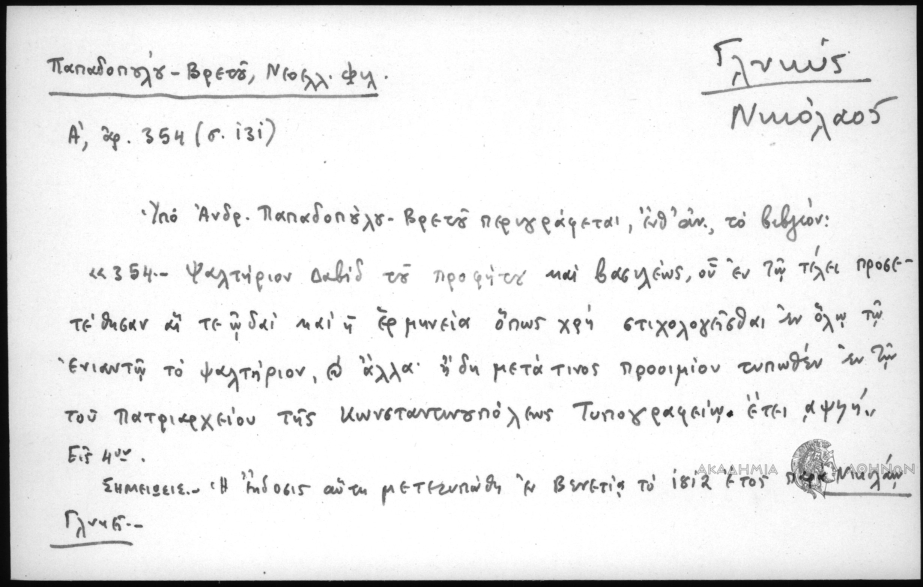 Παπαδοπούλου - Βρετοῦ, Νεοελλ. Φιλ.
Γλυκύς
Νικόλαος
Α', ἀρ. 354 (σ. 131)
Ὑπό Ἀνδρ. Παπαδοπούλου - Βρετοῦ περιγράφεται, ἔνθ' ἀν., τὸ βιβλίον:
«354.- Ψαλτήριον Δαβίδ τοῦ προφήτου καὶ βασιλέως, οὗ ἐν τῷ τέλει προσε-
τέθησαν αἵ τε ᾠδαὶ καὶ ἡ ἑρμηνεία ὅπως χρή στιχολογεῖσθαι ἐν ὅλῳ τῷ
ἐνιαυτῷ τὸ ψαλτήριον, ἄλλα· ἤδη μετά τινος προοιμίου τυπωθέν ἐν τῷ
τοῦ Πατριαρχείου τῆς Κωνσταντινουπόλεως Τυπογραφείῳ. ἔτει
Εἰς 4ον.
Σημείωσις.- Ἡ ἔκδοσις αὕτη μετετυπώθη ἐν Βενετίᾳ τὸ 1812 ἔτος παρὰ Νικολάῳ
Γλυκεῖ.-
ΑΚΑΔΗΜΙΑ ΑΘΗΝΩΝ